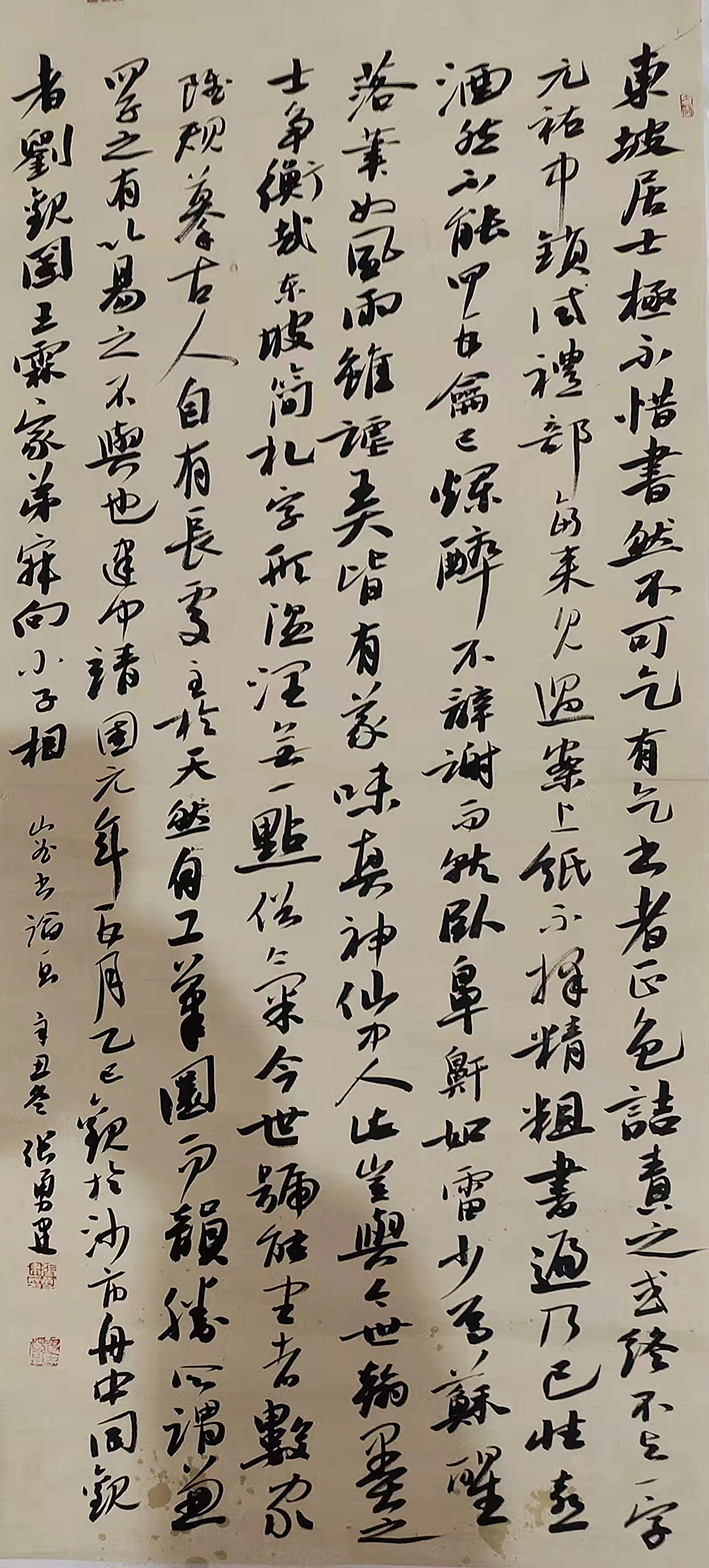 東坡居士極不惜書然不可乞有乞書者正色詰責之或終不與一字
元祐中鎖試禮部每來見過案上紙不擇精粗書遍乃已性喜
酒然不能四五龠已爛醉不辭謝而就臥鼻鼾如雷少焉蘇醒
落筆如風雨雖謔弄皆有義味真神仙中人此豈與今世翰墨之
士爭衡哉東坡簡札字形溫潤無一點俗氣今世號能書者數家
雖規摹古人自有長處至於天然自工筆圓而韻勝所謂兼
四子之有以易之不與也建中靖國元年五月乙巳觀於沙市舟中同觀
者劉觀國王霖家弟叔向小子相 山谷書論 辛丑冬 張勇建